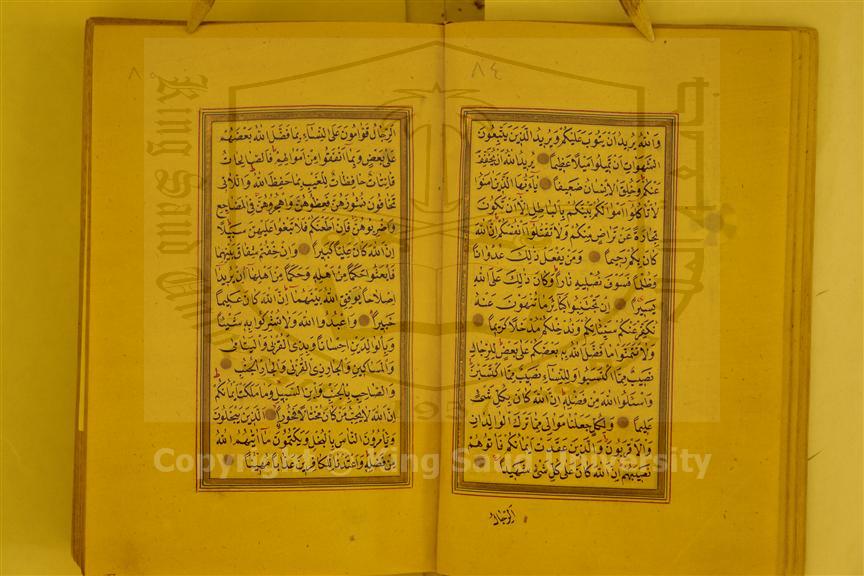 ٨٤
وَاللّٰهُ يُرِيدُ اَنْ يَتُوبَ عَلَيْكُمْ وَيُرِيدُ الَّذِينَ يَتَّبِعُونَ
الشَّهَوَاتِ اَنْ تَمِيلُوا مَيْلًا عَظِيمًا يُرِيدُ اللّٰهُ اَنْ يُخَفِّفَ
عَنْكُمْ وَخُلِقَ الْاِنْسَانُ ضَعِيفًا يَااَيُّهَا الَّذِينَ اٰمَنُوا
لَا تَاْكُلُوا اَمْوَالَكُمْ بَيْنَكُمْ بِالْبَاطِلِ اِلَّا اَنْ تَكُونَ
تِجَارَةً عَنْ تَرَاضٍ مِنْكُمْ وَلَا تَقْتُلُوا اَنْفُسَكُمْ اِنَّ اللّٰهَ
كَانَ بِكُمْ رَحِيمًا وَمَنْ يَفْعَلْ ذٰلِكَ عُدْوَانًا
وَظُلْمًا فَسَوْفَ نُصْلِيهِ نَارًا وَكَانَ ذٰلِكَ عَلَى اللّٰهِ
يَسِيرًا اِنْ تَجْتَنِبُوا كَبَائِرَ مَا تُنْهَوْنَ عَنْهُ
نُكَفِّرْ عَنْكُمْ سَيِّئَاتِكُمْ وَنُدْخِلْكُمْ مُدْخَلًا كَرِيمًا
وَلَا تَتَمَنَّوْا مَا فَضَّلَ اللّٰهُ بِهِ بَعْضَكُمْ عَلَى بَعْضٍ لِلرِّجَالِ
نَصِيبٌ مِمَّا اكْتَسَبُوا وَلِلنِّسَاءِ نَصِيبٌ مِمَّا اكْتَسَبْنَ
وَاسْئَلُوا اللّٰهَ مِنْ فَضْلِهِ اِنَّ اللّٰهَ كَانَ بِكُلِّ شَيْءٍ
عَلِيمًا وَلِكُلٍّ جَعَلْنَا مَوَالِيَ مِمَّا تَرَكَ الْوَالِدَانِ
وَالْاَقْرَبُونَ وَالَّذِينَ عَقَدَتْ اَيْمَانُكُمْ فَاٰتُوهُمْ
نَصِيبَهُمْ اِنَّ اللّٰهَ كَانَ عَلَى كُلِّ شَيْءٍ شَهِيدًا
اَلرِّجَالُ
اَلرِّجَالُ قَوَّامُونَ عَلَى النِّسَاءِ بِمَا فَضَّلَ اللّٰهُ بَعْضَهُمْ
عَلَى بَعْضٍ وَبِمَا اَنْفَقُوا مِنْ اَمْوَالِهِمْ فَالصَّالِحَاتُ
قَانِتَاتٌ حَافِظَاتٌ لِلْغَيْبِ بِمَا حَفِظَ اللّٰهُ وَاللَّاتِي
تَخَافُونَ نُشُوزَهُنَّ فَعِظُوهُنَّ وَاهْجُرُوهُنَّ فِي الْمَضَاجِعِ
وَاضْرِبُوهُنَّ فَاِنْ اَطَعْنَكُمْ فَلَا تَبْغُوا عَلَيْهِنَّ سَبِيلًا
اِنَّ اللّٰهَ كَانَ عَلِيًّا كَبِيرًا وَاِنْ خِفْتُمْ شِقَاقَ بَيْنِهِمَا
فَابْعَثُوا حَكَمًا مِنْ اَهْلِهِ وَحَكَمًا مِنْ اَهْلِهَا اِنْ يُرِيدَا
اِصْلَاحًا يُوَفِّقِ اللّٰهُ بَيْنَهُمَا اِنَّ اللّٰهَ كَانَ عَلِيمًا
خَبِيرًا وَاعْبُدُوا اللّٰهَ وَلَا تُشْرِكُوا بِهِ شَيْئًا
وَبِالْوَالِدَيْنِ اِحْسَانًا وَبِذِي الْقُرْبَى وَالْيَتَامَى
وَالْمَسَاكِينِ وَالْجَارِ ذِي الْقُرْبَى وَالْجَارِ الْجُنُبِ
وَالصَّاحِبِ بِالْجَنْبِ وَابْنِ السَّبِيلِ وَمَا مَلَكَتْ اَيْمَانُكُمْ
اِنَّ اللّٰهَ لَا يُحِبُّ مَنْ كَانَ مُخْتَالًا فَخُورًا اَلَّذِينَ يَبْخَلُونَ
وَيَاْمُرُونَ النَّاسَ بِالْبُخْلِ وَيَكْتُمُونَ مَا اٰتٰيهُمُ اللّٰهُ
مِنْ فَضْلِهِ وَاَعْتَدْنَا لِلْكَافِرِينَ عَذَابًا مُهِينًا
King Saud University
1957
Copyright © King Saud University